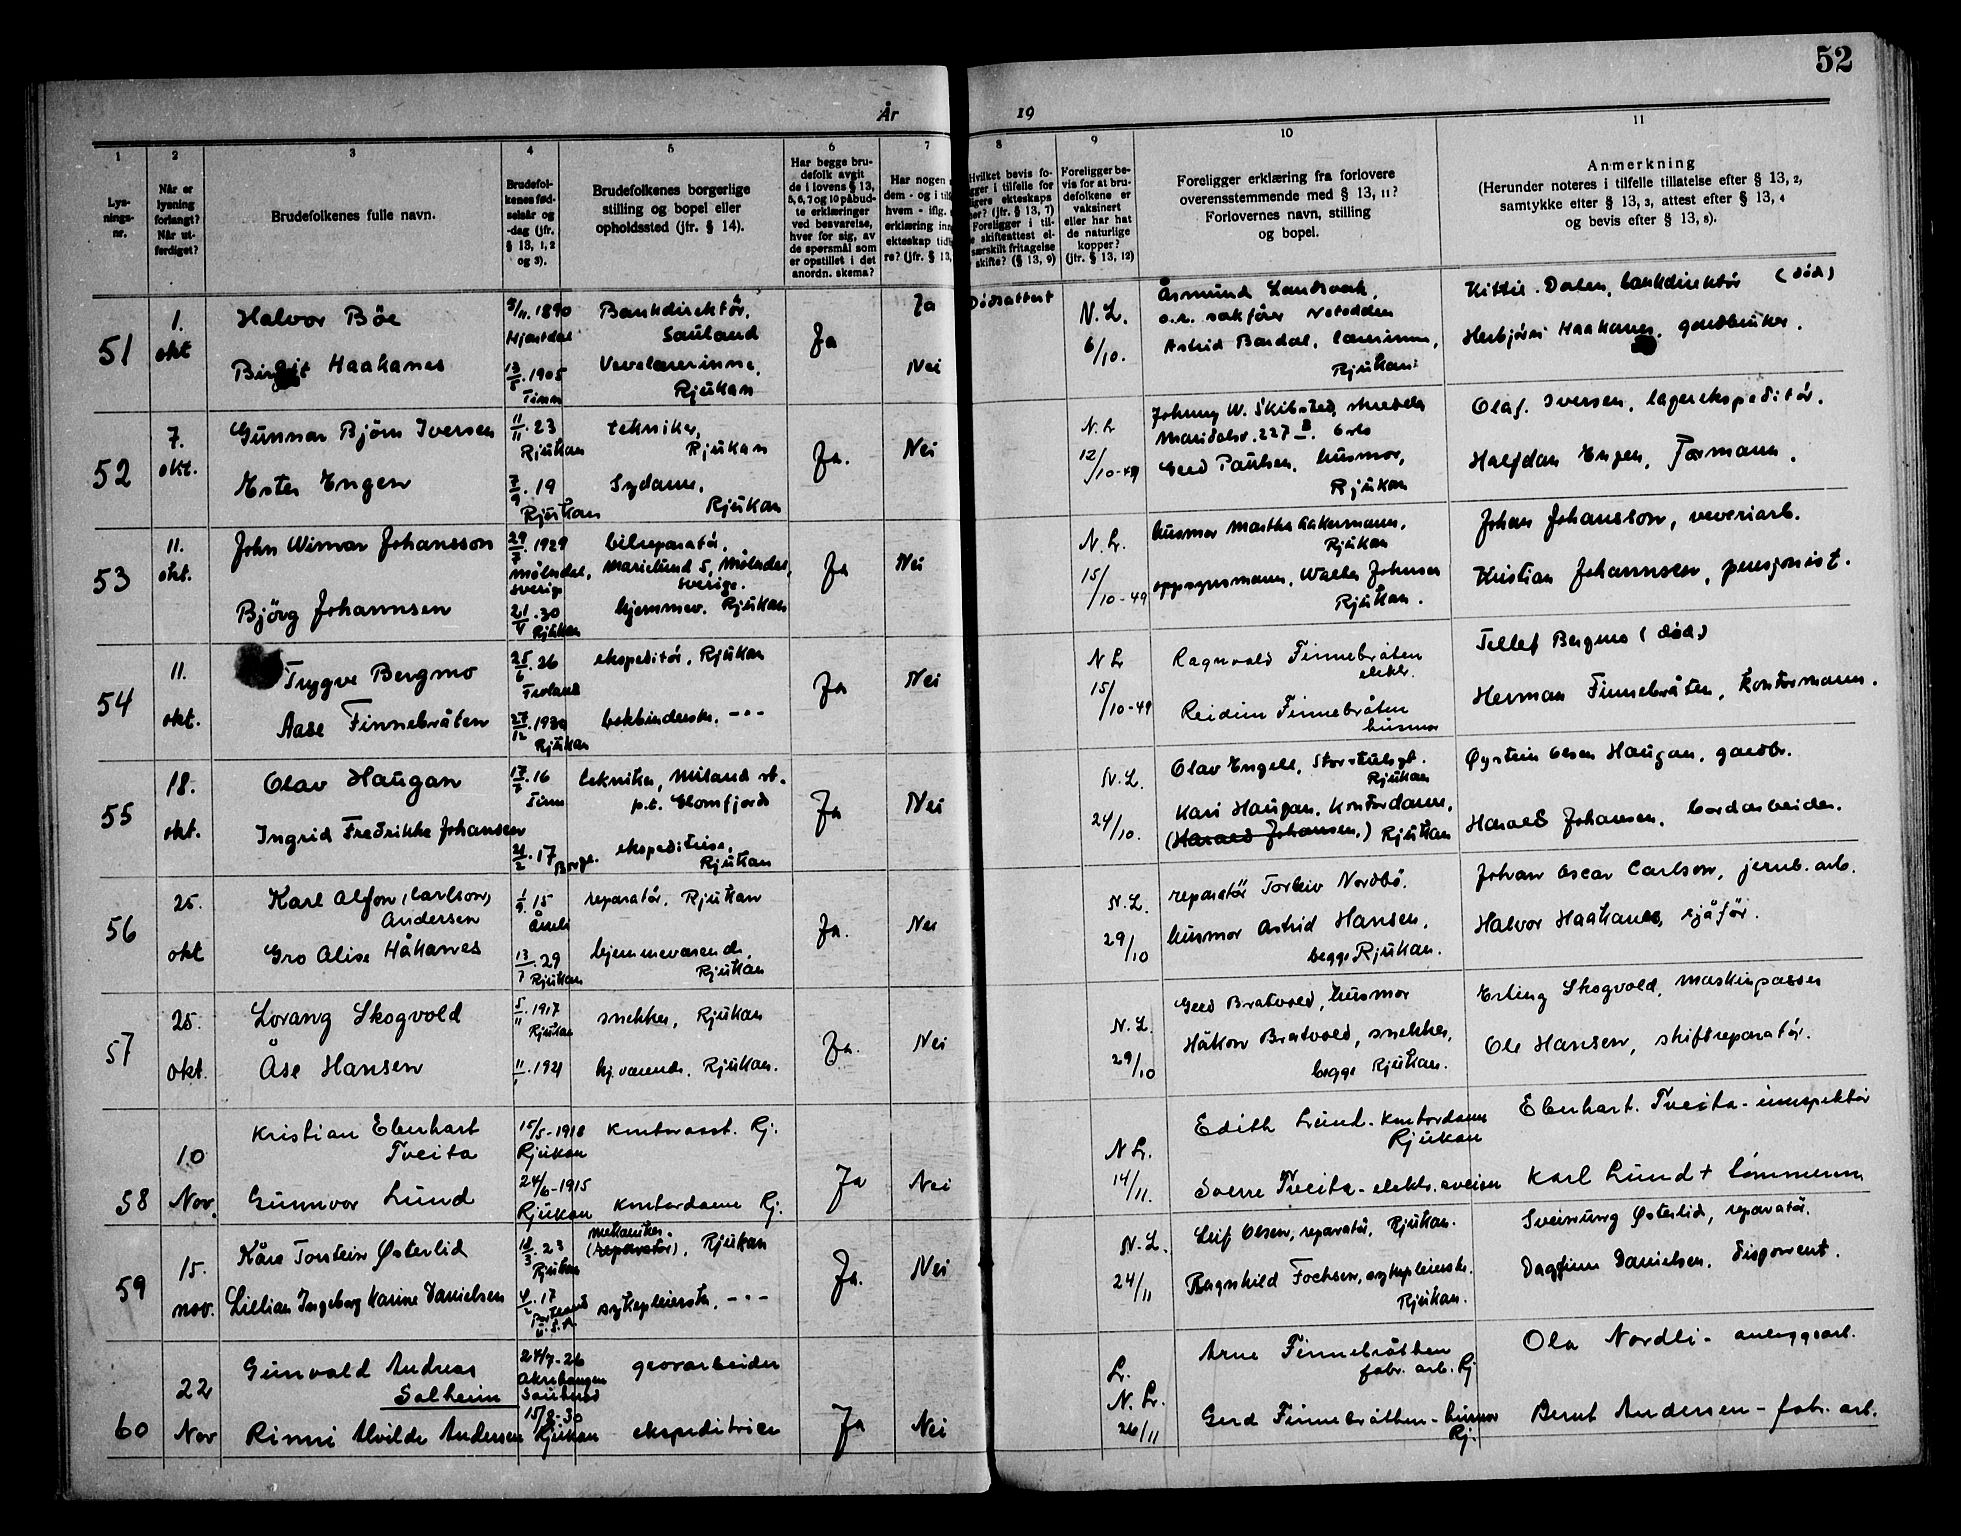 52
År 19
1 2 3 4 5 6 7 8 9 10 11
Lysnings-nr.
Når er lysning forlangt? Når utferdiget?
Brudefolkenes fulle navn.
Brudefolkenes fødselsår og -dag (jfr. § 13, 1, 2 og 3).
Brudefolkenes borgerlige stilling og bopel eller opholdssted (jfr. § 14).
Har begge brudefolk avgit de i lovens § 13, 5, 6, 7 og 10 påbudte erklæringer ved besvarelse, hver for sig, av de spørsmål som er opstillet i det anordn. skema?
Har nogen
dem - og i
hvem - ifig.
erklæring inn
ekteskap tid
re? (jfr. § 13,
Hvilket bevis fo-
gger i tilfelle for
ligere ekteskaps
her? (jfr. § 13, 7)
Foreligger i til-
e skifteattest el-
særskilt fritagelse
skifte? (§ 13, 9)
Foreligger bevis for at brudefolkene er vaksinert eller har hat de naturlige kopper? (jfr. § 13, 12)
Foreligger erklæring fra forlovere overensstemmende med § 13, 11? Forlovernes navn, stilling og bopel.
Anmerkning (Herunder noteres i tilfelle tillatelse efter § 13, 2, samtykke efter § 13, 3, attest efter § 13, 4 og bevis efter § 13, 8).
51 1. okt
Halvor Böe 9/11. 1890 Hjartdal Bankdirektör, Sauland Ja Ja Dødsattest N.L. 6/10. Åsmund Landsverk, o.r. sakfører Notodden Kittil Dalen, bankdirektör (død)
Birgit Haakanes 13/5. 1905 Tinn Vevelærerinne, Rjukan Nei Astrid Bardal, lærerinne, Rjukan Herbjörn Haakanes, gardbruker.
52 7. okt.
Gunnar Björn Iversen 11/11. 23 Rjukan tekniker, Rjukan Ja. Nei N.L. 12/10-49 Johnny W. Skibsted, Maridalsv. 227 B. Oslo Olaf Iversen, lagerekspeditör.
Ester Engen 7/9. 19 Rjukan Sydame, Rjukan Gerd Paulsen, husmor, Rjukan Halfdan Engen, Formann.
53 11. okt.
John Wimar Johansson 29/7. 1929 Mölndal, Sverige bilreparatör, Marielund 5, Mölndal, Sverige. Ja Nei N.L. 15/10-49 husmor Martha Aakermann, Rjukan Johan Johansson, veveriarb.
Björg Johannsen 21/4. 30 Rjukan hjemmev. Rjukan oppsynsmann, Walter Johnsen Rjukan. Kristian Johannsen, pensjonist.
54 11. okt.
Trygve Bergmo 25/6. 26 Froland ekspeditör, Rjukan Ja Nei N L 15/10-49 Ragnvald Finnebråten elektr. Tellef Bergmo (død)
Aase Finnebråten 27/12. 1930 Rjukan bokbinderske, -"- Reidun Finnebråten husmor Herman Finnebråten, Kontormann.
55 18. okt.
Olav Haugan 17/7. 16 Tinn tekniker, Miland st. p.t. Glomfjord Ja Nei N.L. 24/10. Olav Engell, Storstulsgt. Rjukan Øystein Olsen Haugan, gardbr.
Ingrid Fredrikke Johansen 21/2. 17 Borge. ekspeditrise, Rjukan Kari Haugan, Kontordame, (Harald Johansen,) Rjukan Harald Johansen, bordarbeider.
56 25. okt
Karl Alfon, (Carlson) Andersen 1/9. 15 Åmli reparatör, Rjukan Ja. Nei N.L. 29/10 reparatör Torleiv Nordbö. Johan Oscar Carlson, jernb. arb.
Gro Alise Håkanes 13/7. 29 Rjukan hjemmeværende, Rjukan husmor Astrid Hansen, begge Rjukan. Halvor Haakanes, sjåför.
57 25. okt.
Lorang Skogvold 5/11. 1917 Rjukan snekker, Rjukan Ja. Nei N.L. 29/10 Gerd Bratvold, husmor Erling Skogvold, maskinpasser
Åse Hansen 11/1. 1921 hj.værende, Rjukan. Håkon Bratvold, snekker, begge Rjukan. Ole Hansen, skiftreparatör.
58 10 Nov.
Kristian Eberhart Tveita 15/5-1918 Rjukan kontorasst. Rj. Ja Nei N L. 14/11. Edith Lund - kontordame Rjukan Eberhart Tveita - innspektör
Gunnvor Lund 24/6-1915 Rjukan kontordame Rj. Sverre Tveita - elektr. sveiser Karl Lund + tömmerm
59 15. nov.
Kåre Torstein Østerlid 18/3. 23 Rjukan mekaniker (reparatör), Rjukan Ja. Nei N.L. 24/11 Leif Olsen, reparatör, Rjukan. Sveinung Østerlid, reparatör.
Lillian Ingeborg Karine Danielsen 4/1. 17 Portland U.S.A. sykepleierske, -"- Ragnhild Fochsen, sykepleierske. Rjukan. Dagfinn Danielsen, disponent.
60 22 Nov
Gunvald Andreas Solheim 24/7-26 Akrehaugen Sauherad gravarbeider Ja Nei L. N.L. 26/11 Arne Finnebråthen fabr. arb. Rj Ola Nordli - anleggsarb.
Rinni Alvilde Andersen 15/8-30 Rjukan ekspeditrice Gerd Finnebråthen - husmor Rj. Bernt Andersen - fabr. arb.